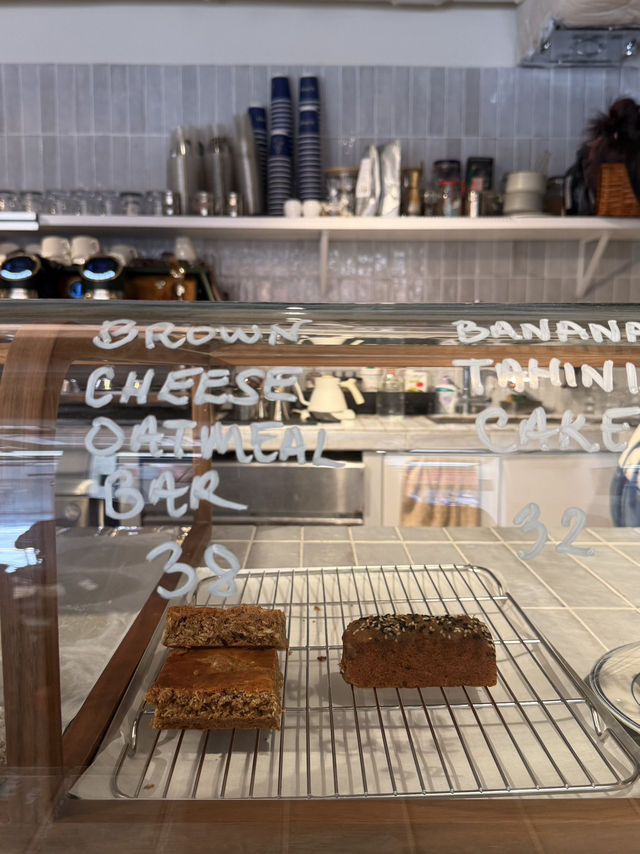 BROWN
CHEESE
OATMEAL
BAR
38
BANANA
TAHINI
CAKE
32